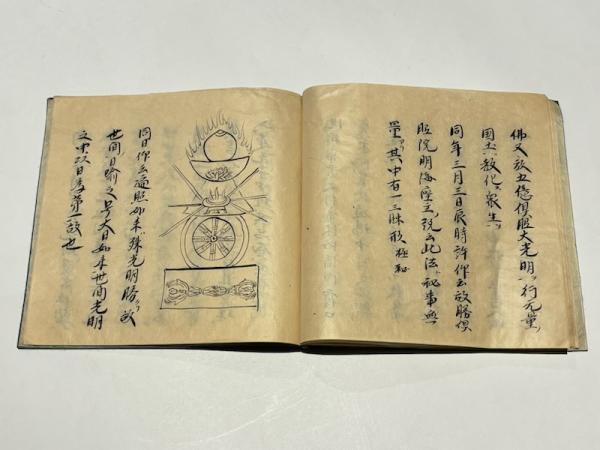 佛又放五億倶胝大光明。行无量
国土。教化衆生。
同年三月三日辰時許仰云故勝倶
胝院明海座主。説云此法。秘事無
量。其中有一三昧形極秘
同日仰云遍照如来。殊光明勝。故
世間日喩之号大日如来世間光明
之中以日為第一故也